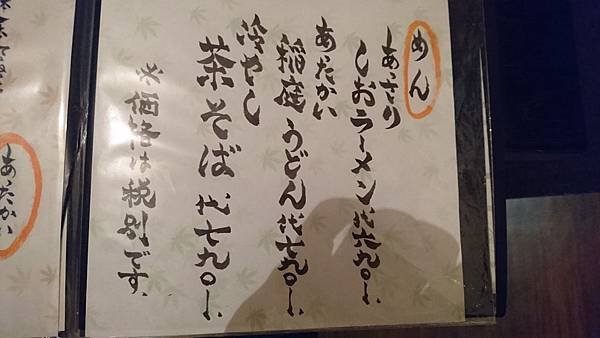 めん
あっさり
しおラーメン 代六九〇ー、
あったかい
稲庭うどん 代七九〇ー、
冷やし
茶そば 代七九〇ー、
※価格は税別です、
あったかい